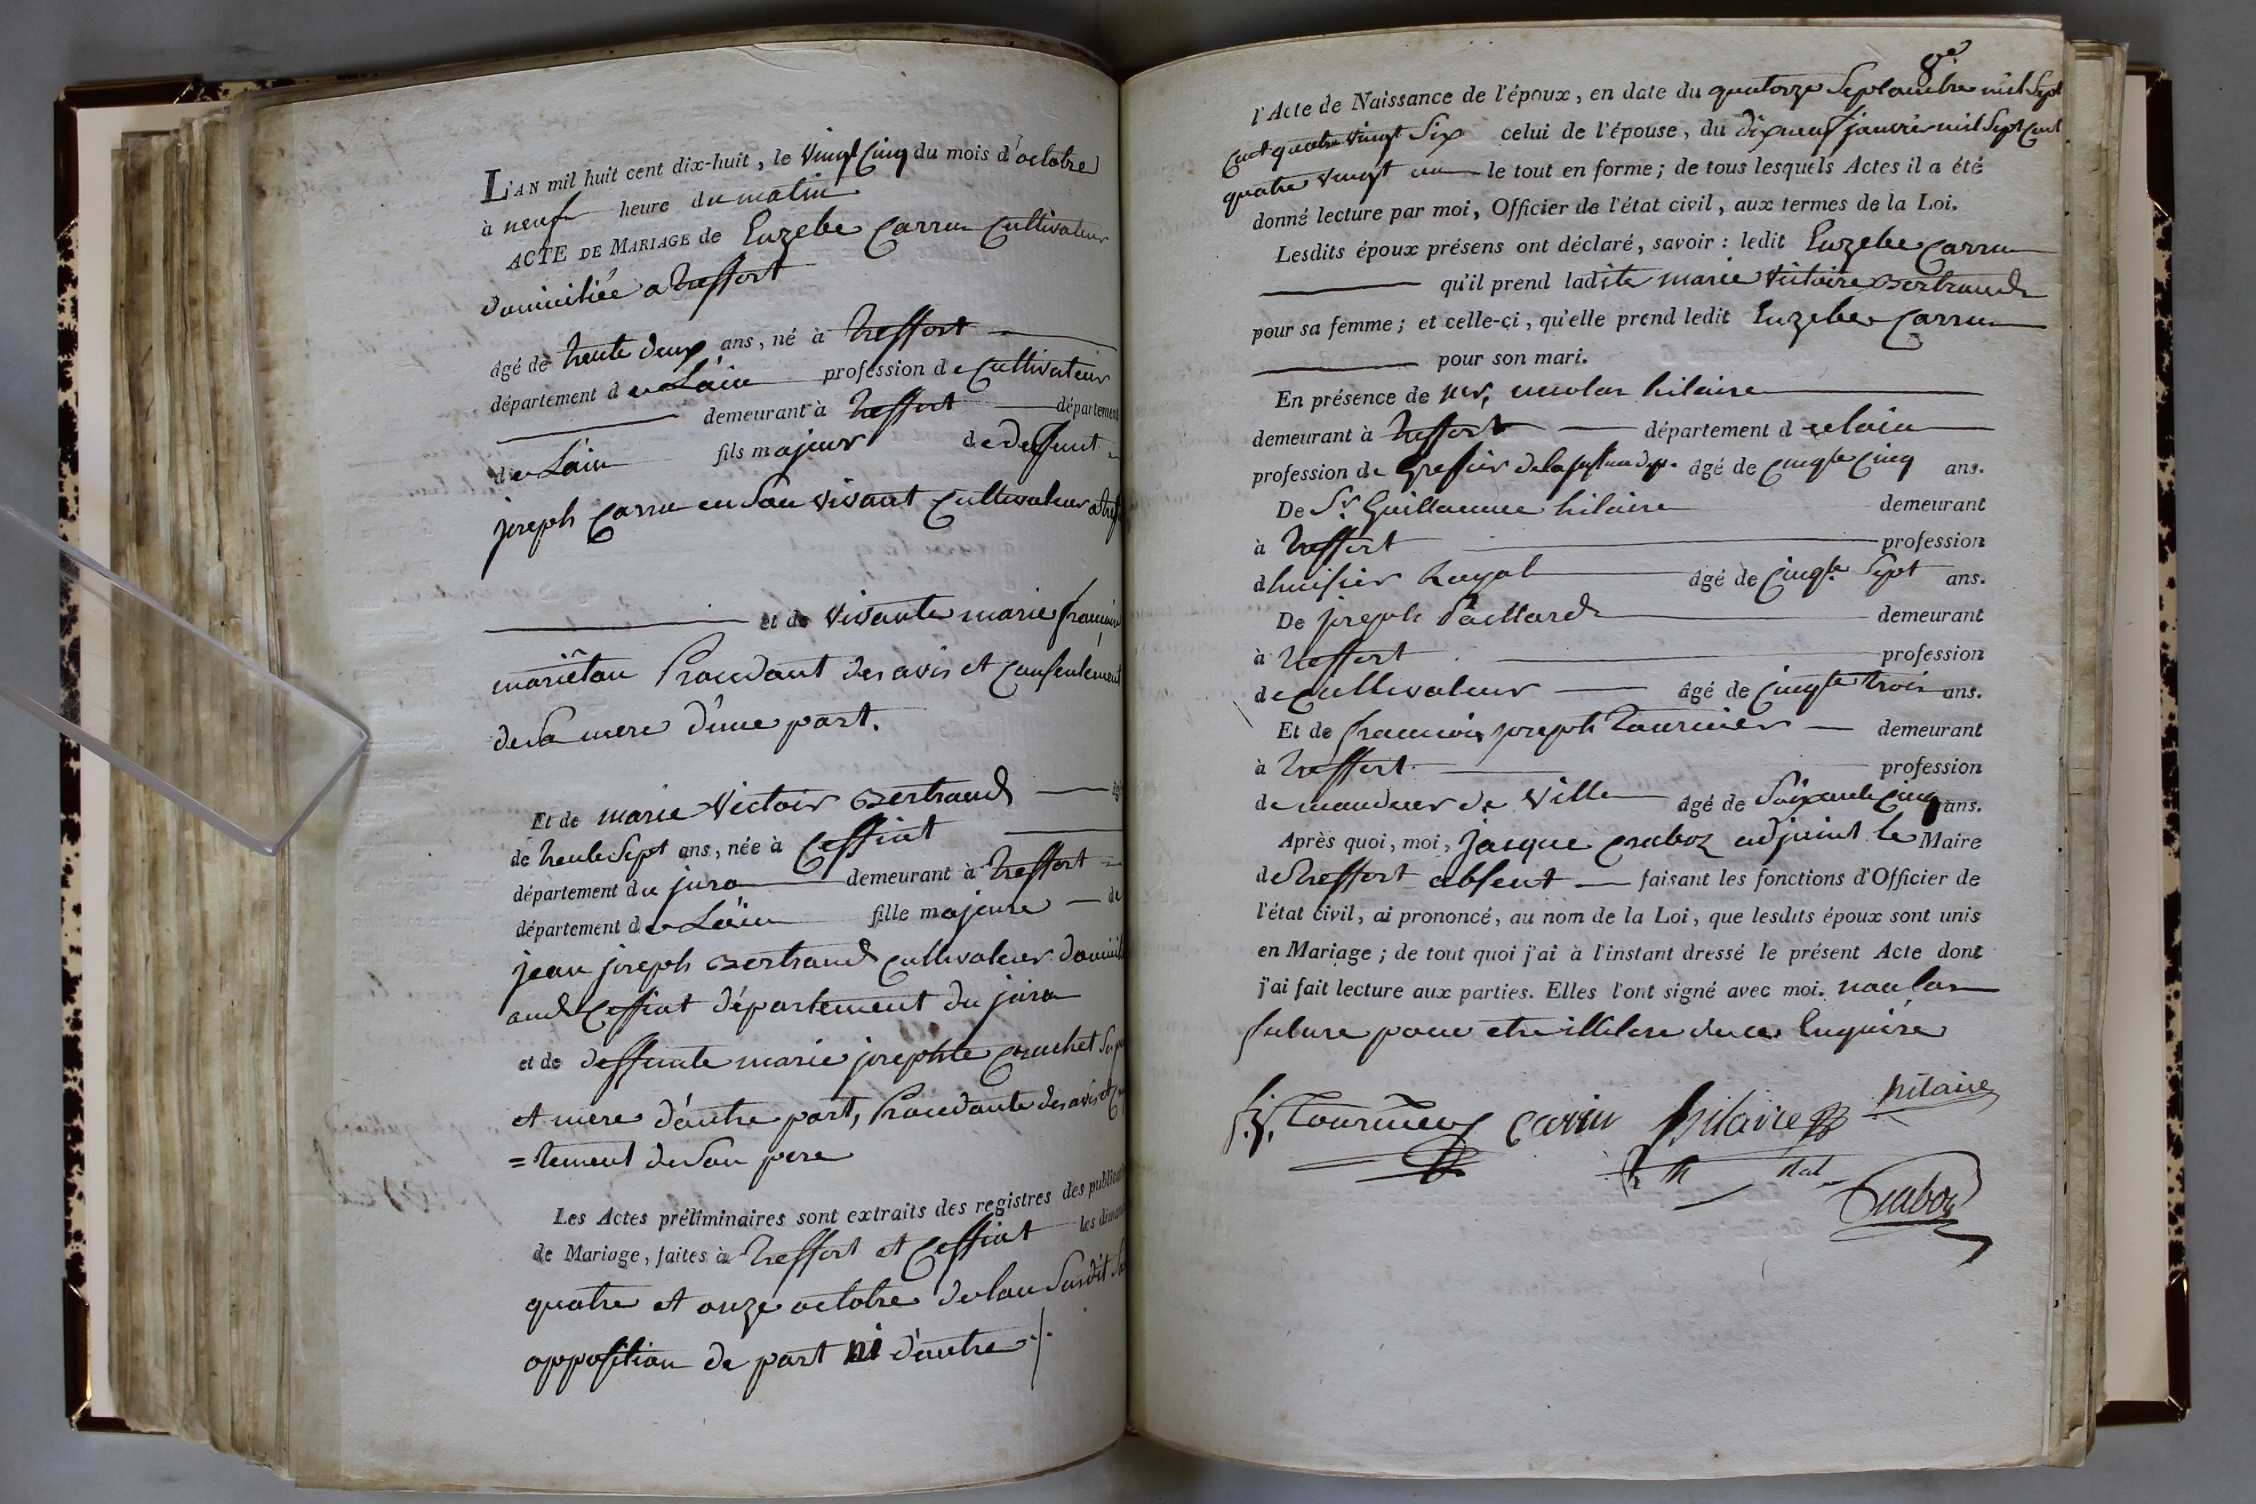 L'AN mil huit cent dix-huit, le vingt cinq du mois d'octobre
à neuf heure du matin
ACTE DE MARIAGE de Euzebe Carru Cultivateur
domiciliée a treffort
âgé de trente deux ans, né à treffort
département d e L'ain profession d e Cultivateur
demeurant à treffort département
d e L'ain fils majeur de deffunt
joseph Carru en Son vivant Cultivateur a
et de vivante marie
mariëton Procedant des avis et Consentement
de Sa mere d'une part.
Et de marie Victoir Bertrand
de trente Sept ans, née à Ceffiat
département du jura demeurant à treffort
département d e L'ain fille majeure de
jean joseph Bertrand Cultivateur
Ceffiat département du jura
et de deffunte marie josephte
et mere d'autre part, Procedante des avis et
=tement de Son pere
Les Actes préliminaires sont extraits des registres des
de Mariage, faites à treffort et Ceffiat les
quatre et onze octobre de lan Susdit
opposition de part ni d'autre ./.
8e
l'Acte de Naissance de l'époux, en date du quatorze Septembre mil Sept
Cent quatre vingt Six celui de l'épouse, du dix neuf janvier mil Sept Cent
quatre vingt un le tout en forme; de tous lesquels Actes il a été
donné lecture par moi, Officier de l'état civil, aux termes de la Loi.
Lesdits époux présens ont déclaré, savoir: ledit Euzebe Carru
qu'il prend ladite marie Victoire Bertrand
pour sa femme; et celle-ci, qu'elle prend ledit Euzebe Carru
pour son mari.
En présence de nicolas hilaire
demeurant à treffort département d e lain
profession de Grefier de la âgé de Cinqte Cinq ans.
De Sr. Guillaume hilaire demeurant
à treffort profession
d huissier Royal âgé de Cinqte Sept ans.
De joseph Paillard demeurant
à treffort profession
de Cultivateur âgé de Cinqte trois ans.
Et de francois joseph tournier demeurant
à treffort profession
de mandeur de ville âgé de Soixante Cinq ans.
Après quoi, moi, Jacque Craboz adjoint le Maire
de treffort absent faisant les fonctions d'Officier de
l'état civil, ai prononcé, au nom de la Loi, que lesdits époux sont unis
en Mariage; de tout quoi j'ai à l'instant dressé le présent Acte dont
j'ai fait lecture aux parties. Elles l'ont signé avec moi. non la
future pour etre illitere de ce Enquise
f. j. tournier Carru hilaire hilaire
Craboz